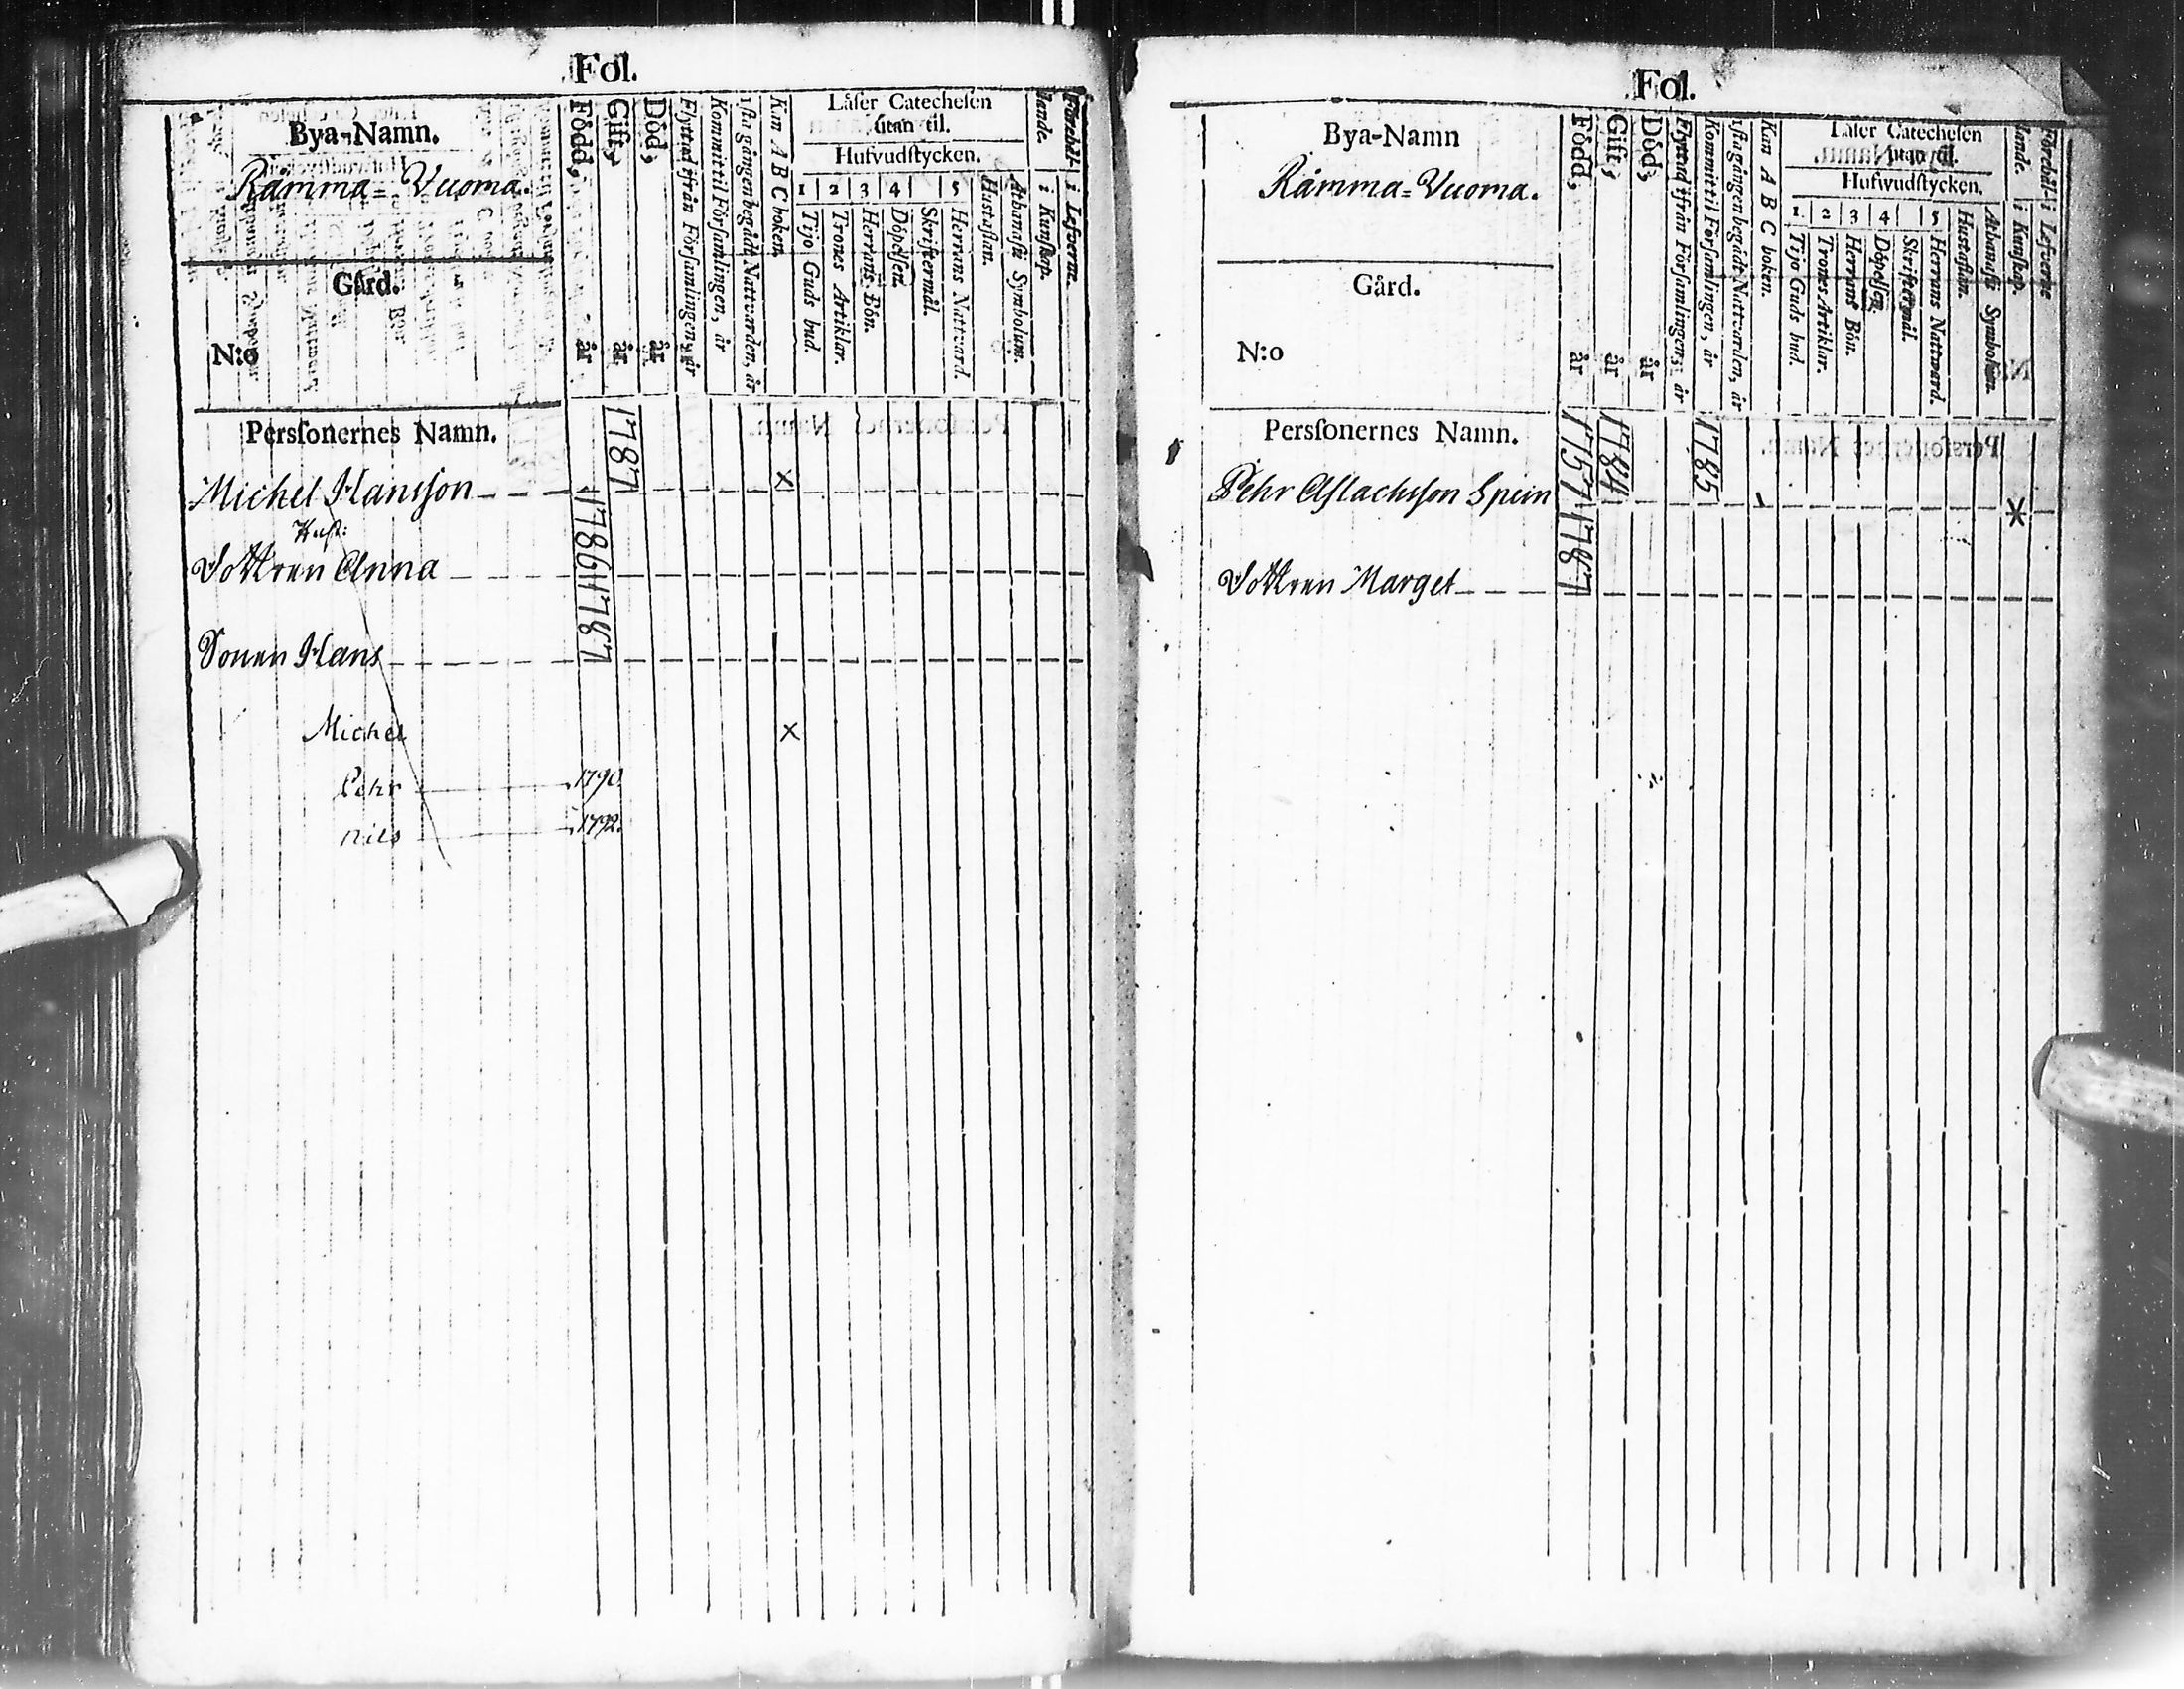 Fol.
Bya-Namn.
Rämma=Vuoma.
Gård.
N:o
Född, år
Gift, år
Död, år
Flyttad ifrån Församlingen, år
Kommit til Församlingen, år
1sta gången begådt Nattvarden, år
Kan A B C boken.
Läser Catechesen
utan til.
Hufvudstycken.
1 2 3 4 5
Tijo Guds bud.
Trones Artiklar.
Herrans Bön.
Döpelsen.
Skriftermål.
Herrans Nattvard.
Hustaflan.
Athanasii Symbolum.
Förehål-
lande.
i Kunskap.
i Lefverne.
Personernes Namn.
Michel Hansson 1787 x
Hust:
Dottren Anna 1786
Sonen Hans 1787
Michel x
Pehr 1790.
Nils 1792.
Fol.
Bya-Namn
Rämma=Vuoma.
Gård.
N:o
Född, år
Gift, år
Död, år
Flyttad ifrån Församlingen, år
Kommit til Församlingen, år
1sta gången begådt Nattvarden, år
Kan A B C boken.
Läser Catechesen
utan til.
Hufwudstycken.
1. 2 3 4 5
Tijo Guds bud.
Trones Artiklar.
Herrans Bön.
Döpelsen.
Skriftermål.
Herrans Nattward.
Hustaflan.
Athanasii Symbolum.
Förehål-
lande.
i Kunskap.
i Lefverne
Personernes Namn.
Pehr Aslachsson Spein 1757 1784 1785
Dottren Marget 1787